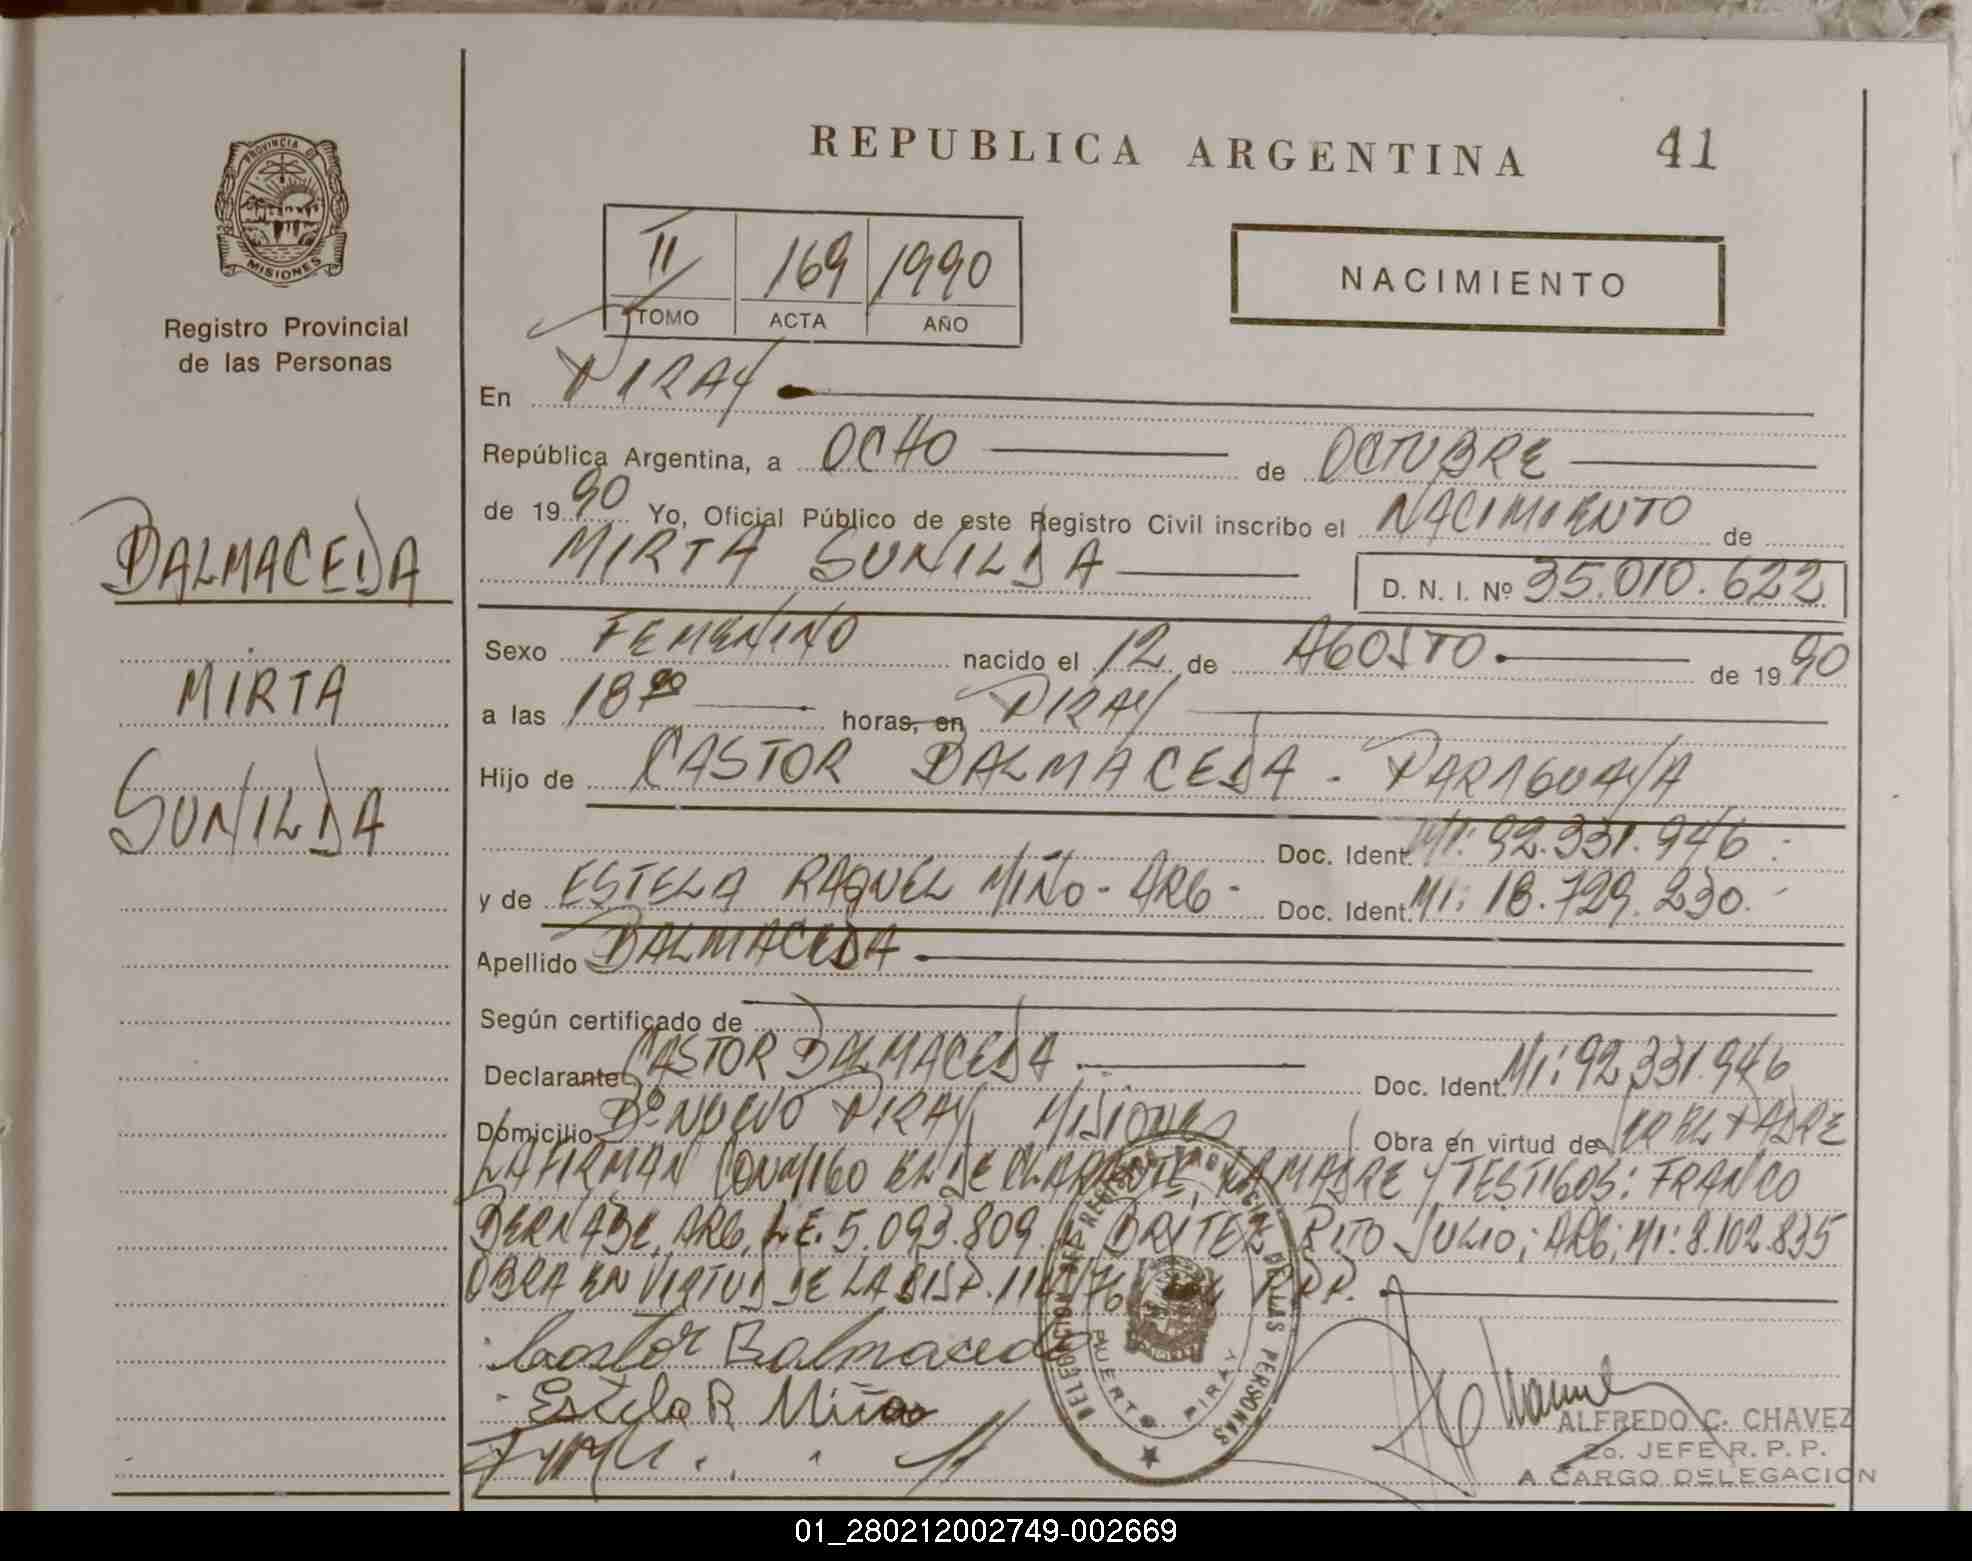 REPUBLICA ARGENTINA
41
PROVINCIA DE
MISIONES
Registro Provincial
de las Personas
II 169 1990
TOMO ACTA AÑO
NACIMIENTO
En PIRAY
República Argentina, a OCHO de OCTUBRE
de 1990 Yo, Oficial Público de este Registro Civil inscribo el NACIMIENTO de
MIRTA SUNILDA D. N. I. Nº 35.010.622
BALMACEDA
MIRTA
SUNILDA
Sexo FEMENINO nacido el 12 de AGOSTO de 1990
a las 18 horas, en PIRAY
Hijo de CASTOR BALMACEDA - PARAGUAYA
Doc. Ident. MI: 92.331.946
y de ESTELA RAQUEL MIÑO - ARG - Doc. Ident. MI: 18.729.230.
Apellido BALMACEDA
Según certificado de
Declarante CASTOR BALMACEDA Doc. Ident. MI: 92.331.946
Domicilio Bº NUEVO PIRAY MISIONES Obra en virtud de SER EL PADRE
LA FIRMAN CONMIGO EL DECLARANTE, LA MADRE Y TESTIGOS: FRANCO
BERNABE, ARG, L.E. 5.093.809 BRITEZ RITO JULIO; ARG; MI: 8.102.835
OBRA EN VIRTUD DE LA DISP. R.P.P.
Castor Balmaceda
Estela R Miño
DELEGACION DEL REGISTRO PROVINCIAL DE LAS PERSONAS
PUERTO PIRAY
ALFREDO C. CHAVEZ
2o. JEFE R. P. P.
A CARGO DELEGACION
01_280212002749-002669